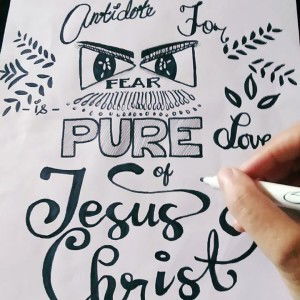 Antidote For
FEAR
- is - PURE Love
of
Jesus
Christ